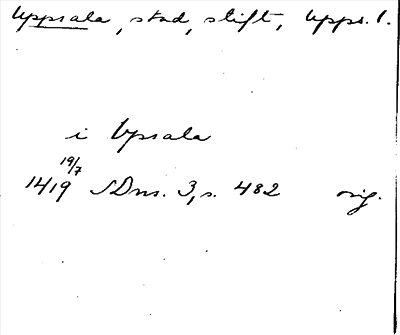 Uppsala, stad, stift, Upps. l.
i Upsala
19/7
1419 SDns. 3, s. 482 orig.